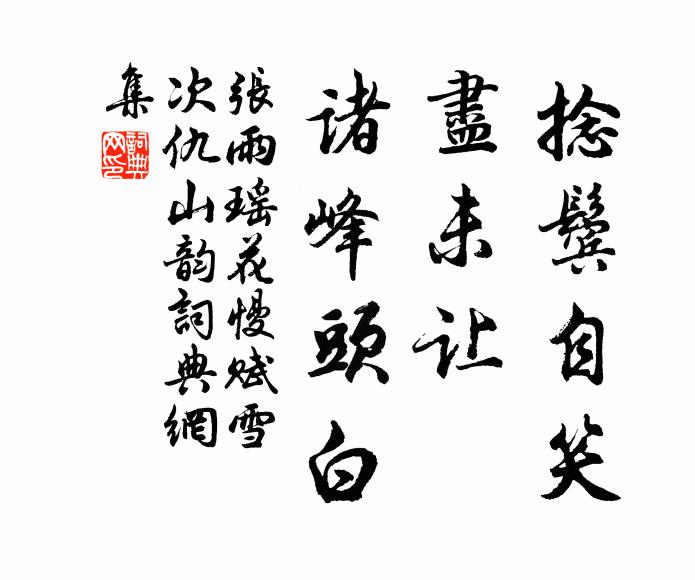 捻鬓自笑
盡未让
诸峰頭白
張雨瑶花慢赋雪
次仇山韵詞典網
集
詞典網印